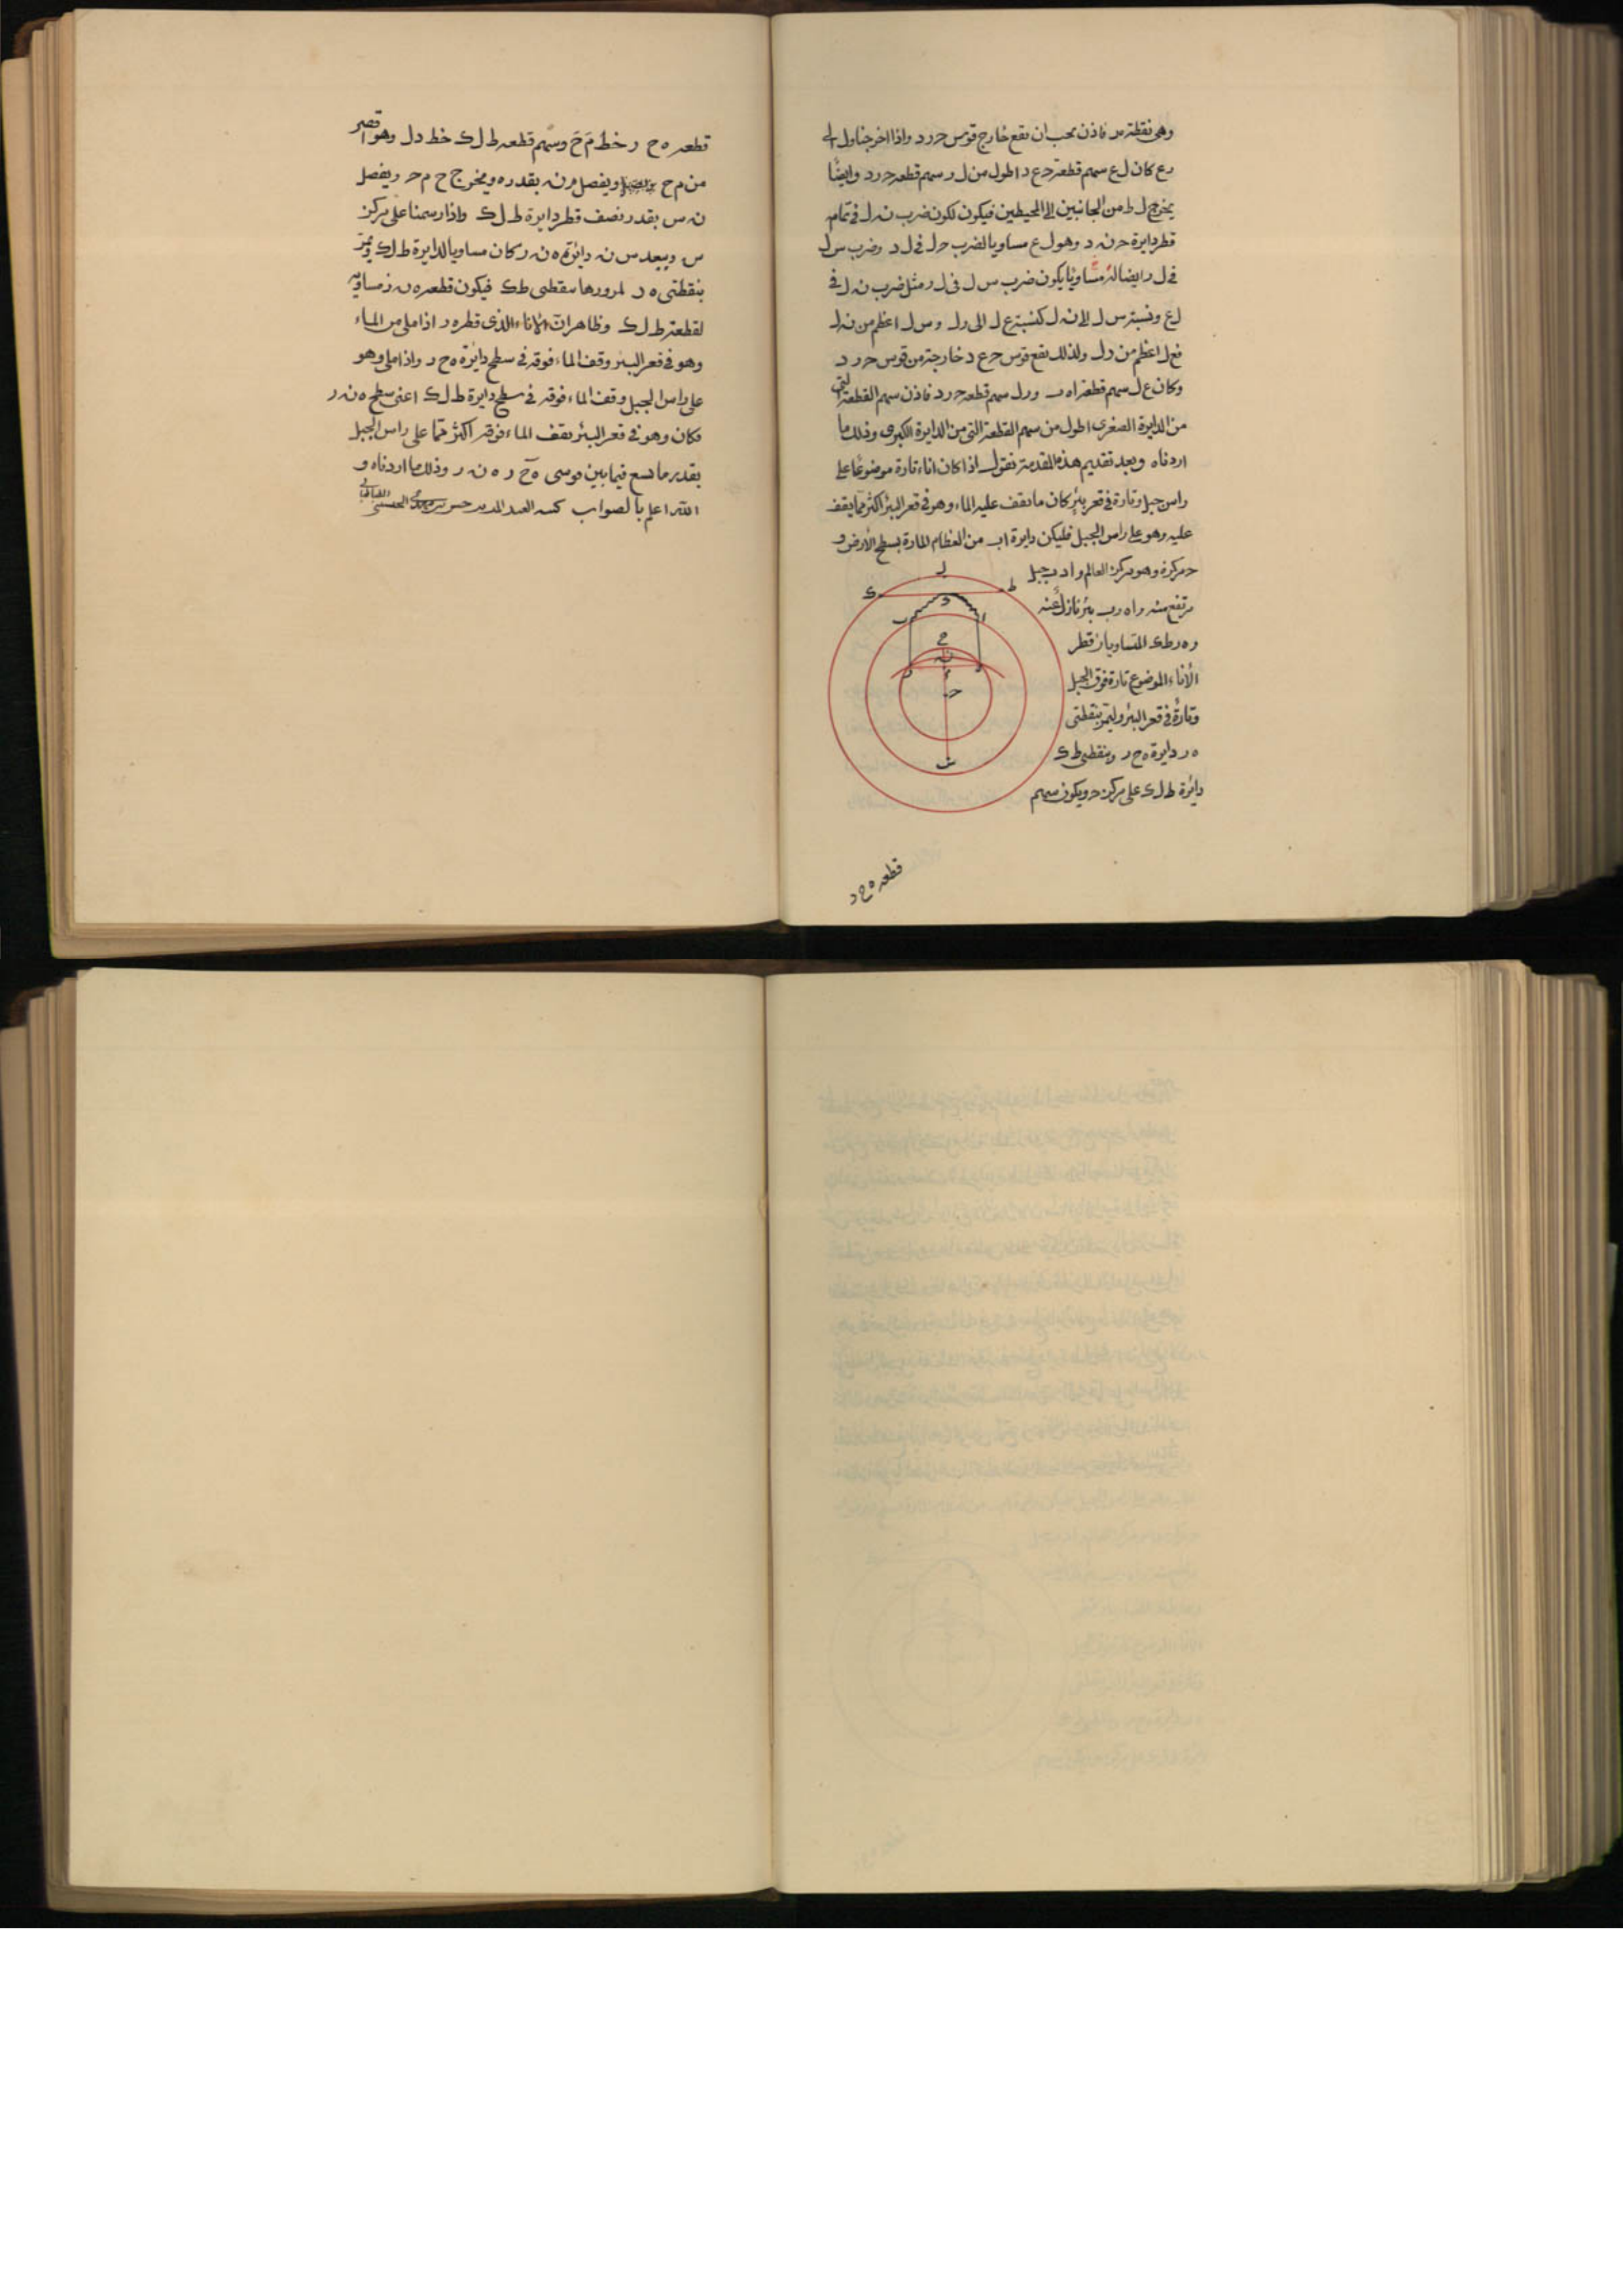 وهى نقطة ر فاذن يجب ان يقع خارج قوس ح ر د واذا اخرجنا ول الى
رع كان ل ع سهم قطعة ح ع د اطول من ل ر سهم قطعه ح ر د وايضًا
يخرج ل ط من الجانبين الى المحيطين فيكون لكون ضرب نه ل فى تمام
قطر دايرة ح نه د وهو ل ع مساويا لضرب ح ل فى ل د وضرب س ل
فى ل ر ايضا له مساويًا يكون ضرب س ل فى ل ر مثل ضرب نه ل فى
ل ع ونسبة س ل الى نه ل كنسبة ع ل الى ر ل و س ل اعظم من نه ل
فع ل اعظم من ر ل ولذلك يقع قوس ح ع د خارجة من قوس ح ر د
وكان ع ل سهم قطعة و ر ل سهم قطعه ح ر د فاذن سهم القطعة التى
من الدايرة الصغرى اطول من سهم القطعة التى من الدايرة الكبرى وذلك ما
اردناه وبعد تقديم هذه المقدمة نقول اذا كان اناء تارة موضوعًا على
راس جبل وتارة فى قعر بئر كان ما يقف عليه الماء وهو فى قعر البئر اكثر مما يقف
عليه وهو على راس الجبل فليكن دايرة اب من العظام المارة بسطح الأرض و
ح مركزه وهو مركز العالم و ا د ب جبل
مرتفع منه و ا ه ر ب بئر نازل عنه
و ه ر ط ك المتساويان قطر
الأناء الموضوع تارة فوق الجبل
وتارة فى قعر البئر وليمر بنقطتى
ه ر دايرة ه ح ر وبنقطتى ط ك
دائرة ط ل ك على مركز ح ويكون سهم
ل
ط
ك
د
ا
ب
ح
نه
م
ه
ر
ح
س
قطعه ه ح ر
قطعه ه ح ر خط م ح وسهم قطعه ط ل ك خط د ل وهو اقصر
من م ح ويفصل م نه بقدره ويخرج ح م ح ويفصل
نه س بقدر نصف قطر دايرة ط ل ك واذا رسمنا على مركز
س وببعد س نه دايرة ه نه ر كان مساويا لدايرة ط ل ك ويمر
بنقطتى ه ر لمرورها بنقطتى ط ك فيكون قطعه ه نه ر مساوية
لقطعة ط ل ك وظاهر ان الاناء الذى قطره ه ر اذا ملى من الماء
وهو فى قعر البئر وقف الماء فوقه فى سطح دايرة ه ح ر واذا ملى وهو
على راس الجبل وقف الماء فوقه فى سطح دايرة ط ل ك اعنى سطح ه نه ر
فكان وهو فى قعر البئر يقف الماء فوقه اكثر مما على راس الجبل
بقدر ما يسع فيما بين قوسى ه ح ر ه نه ر وذلك ما اردناه و
الله اعلم بالصواب كتبه العبد